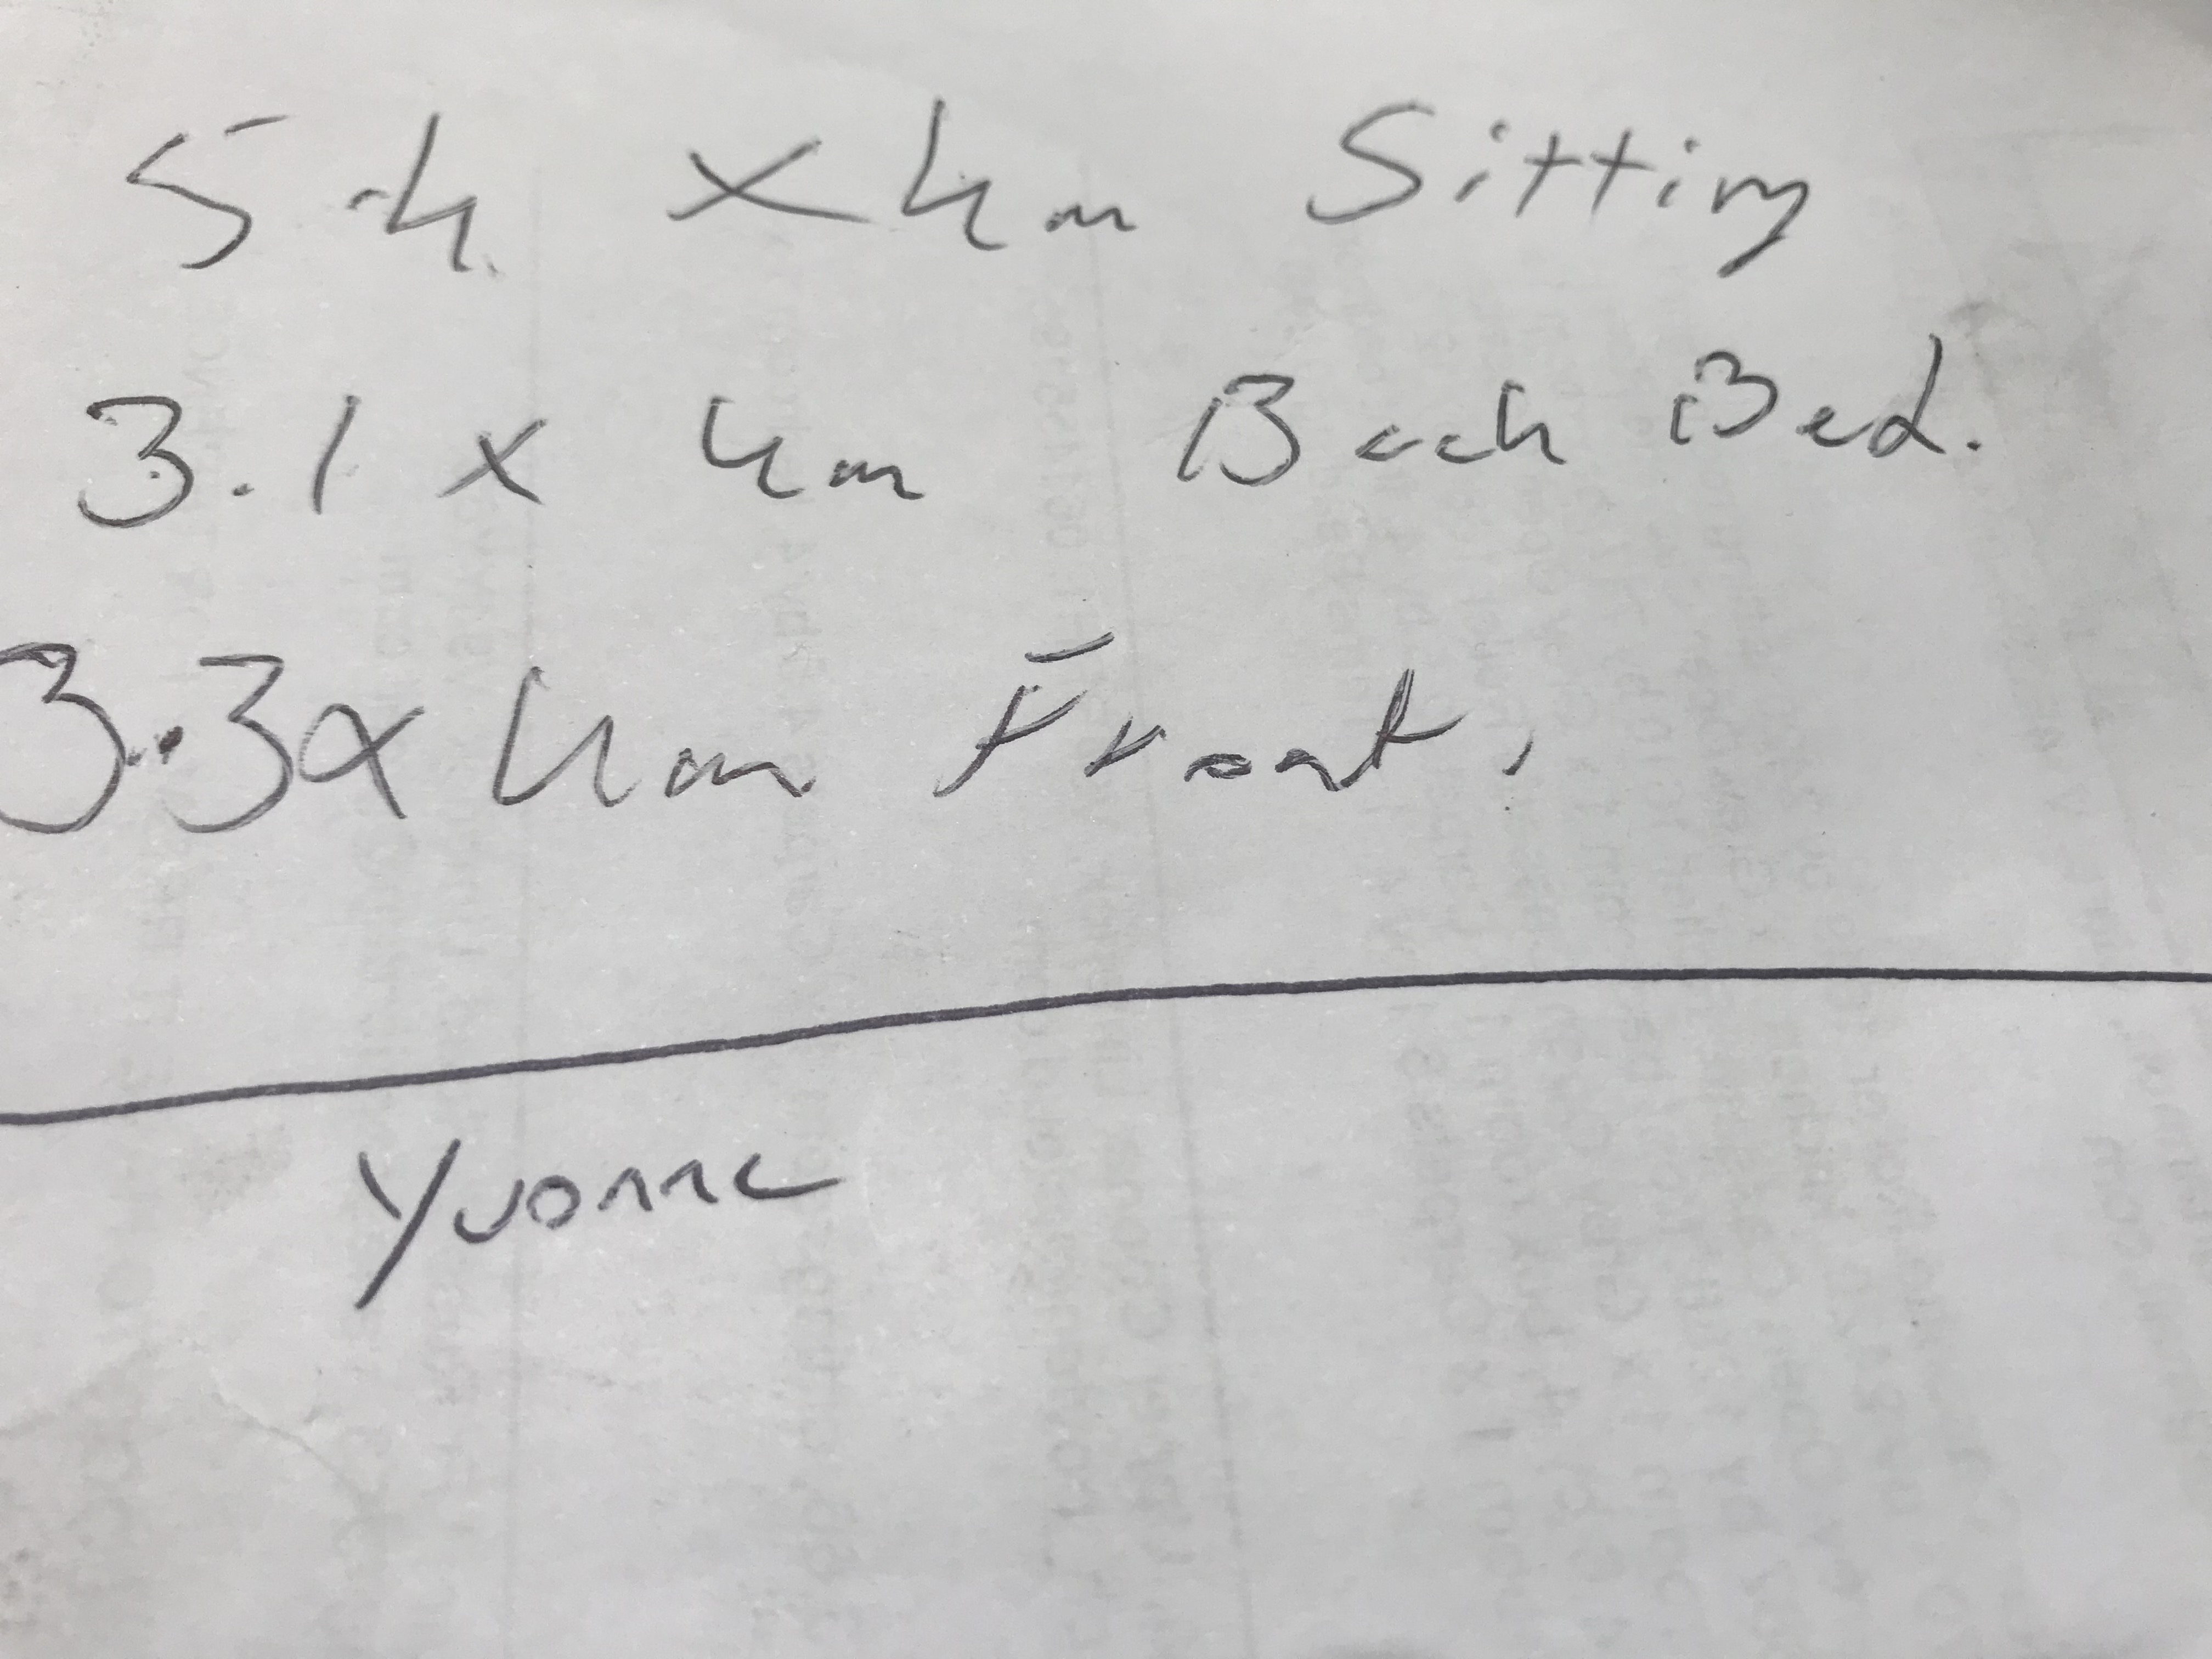 5.4 x 4m Sitting
3.1 x 4m Back Bed.
3.3 x 4m Front.
Yvonne